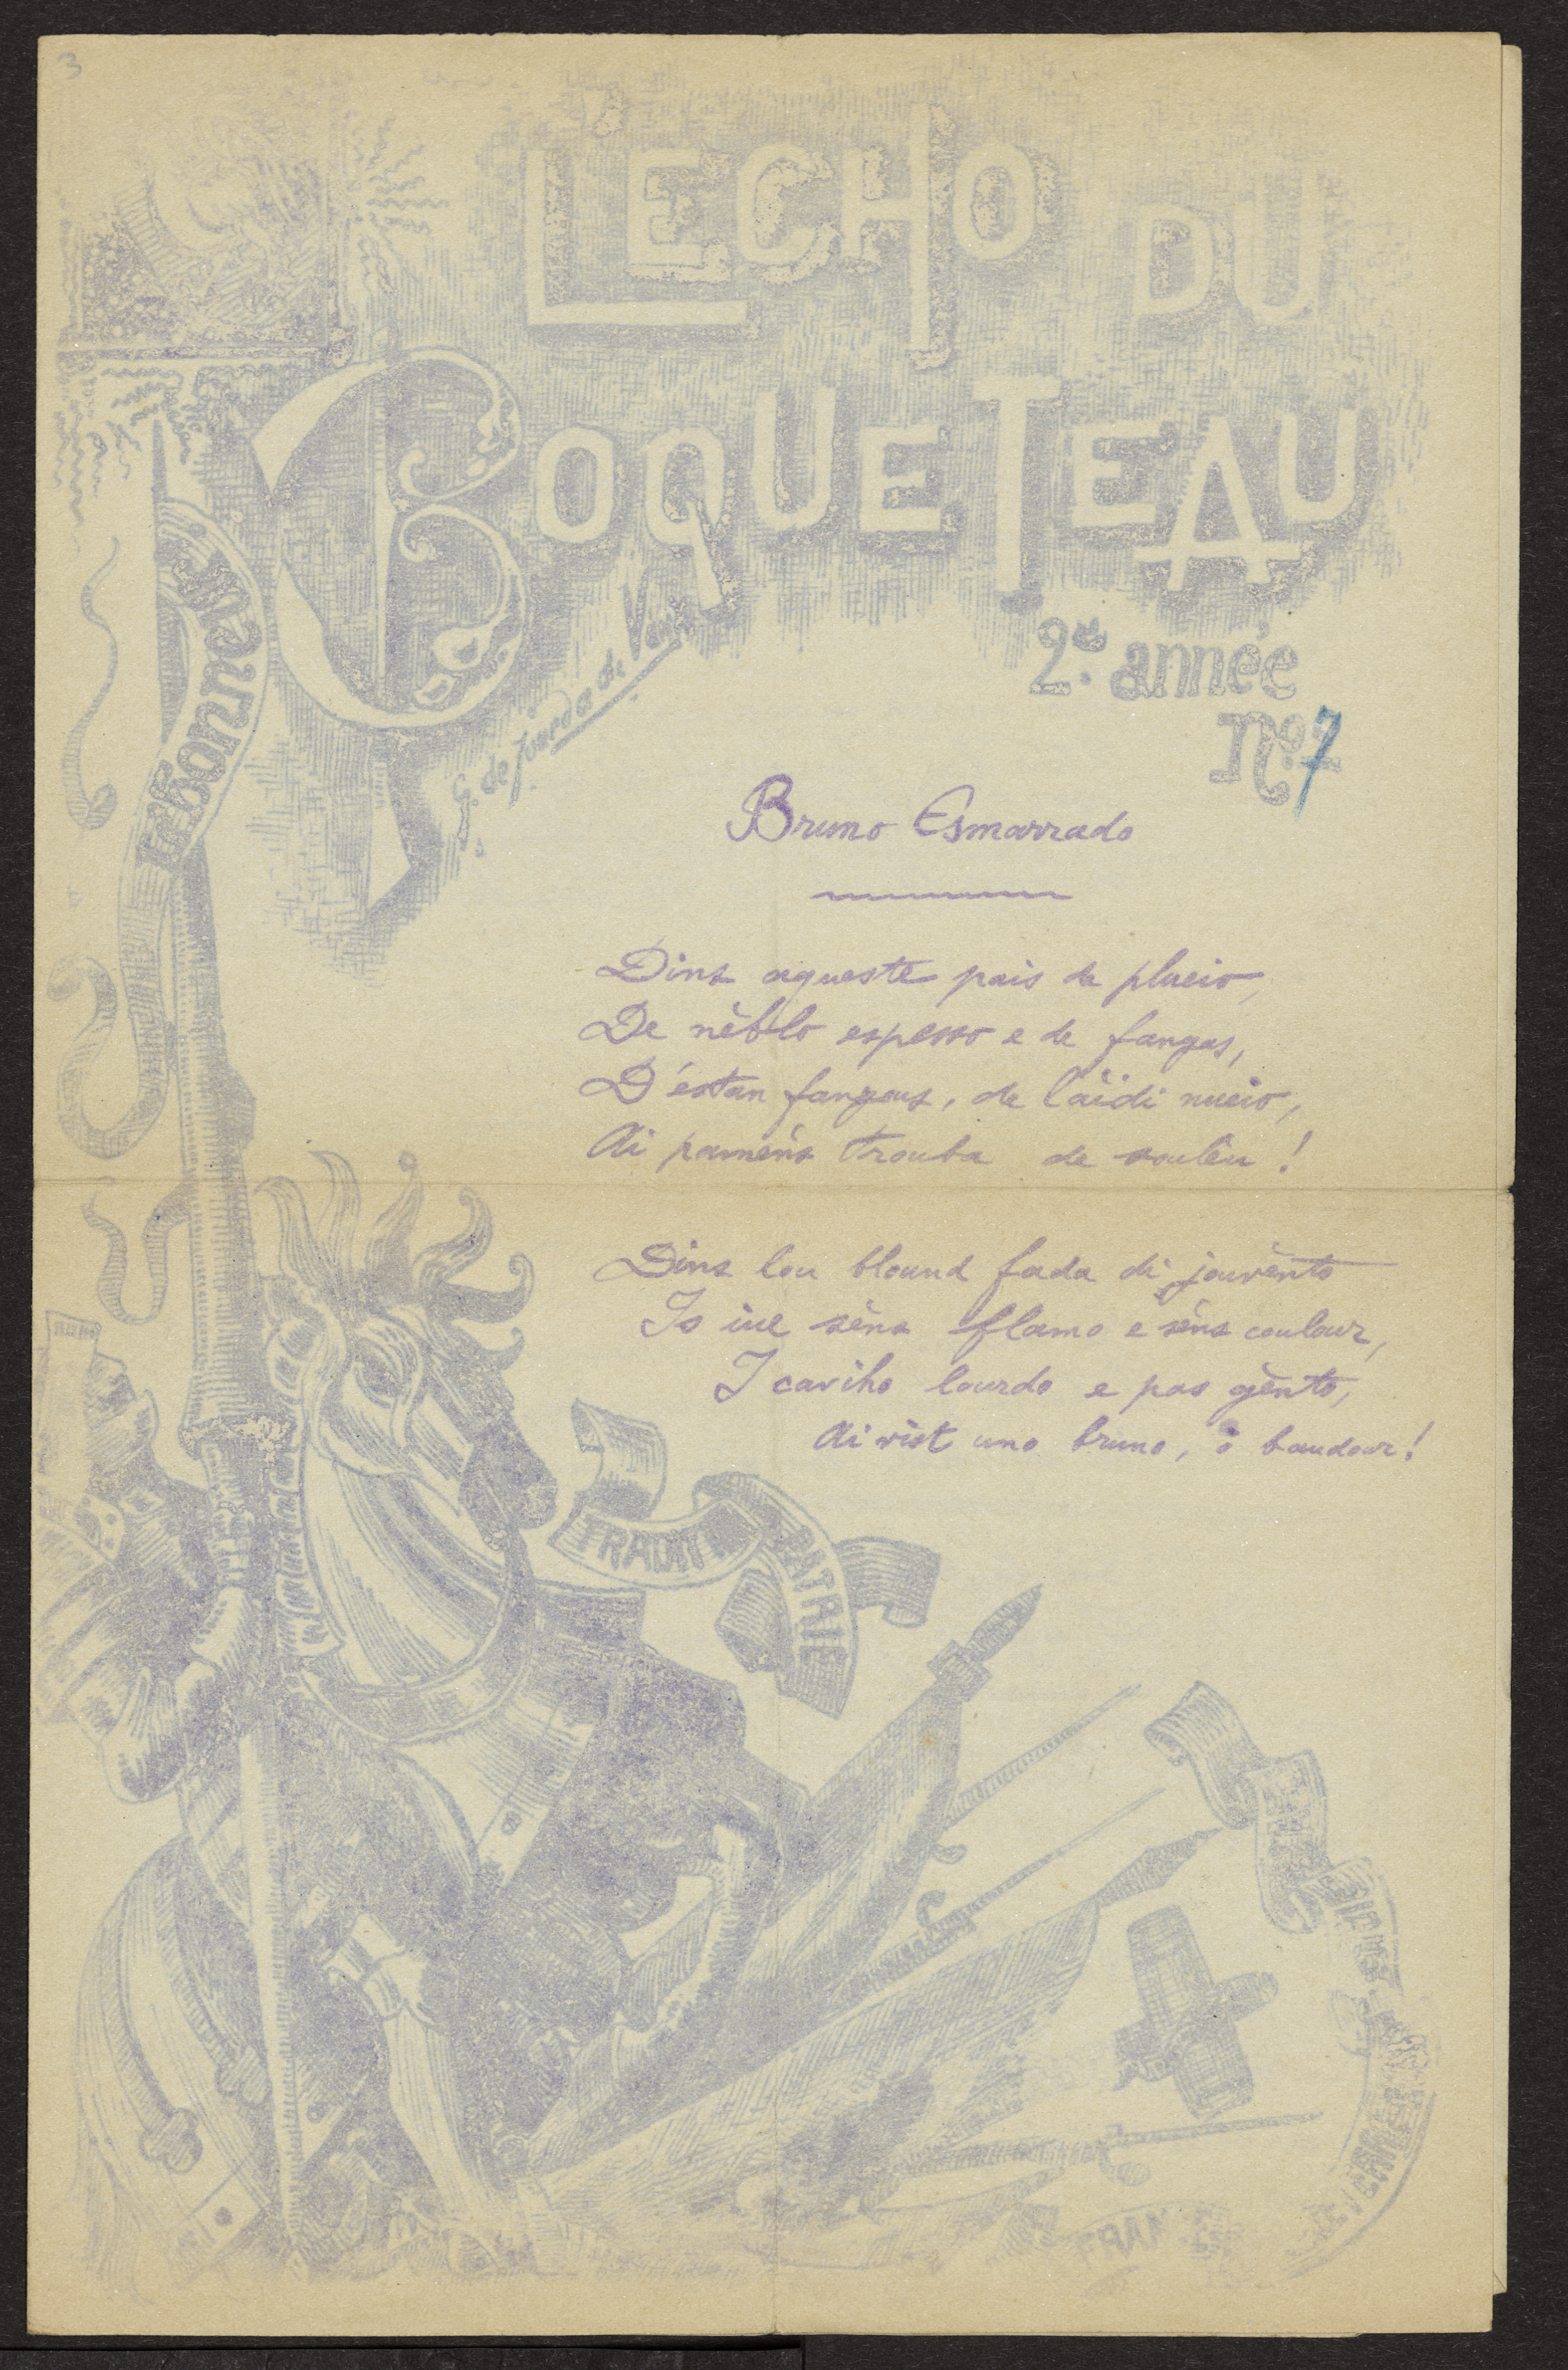 3
L'ECHO DU
BOQUETEAU
Narbonne
G. de Jourda de Vaux
2e. année
No. 7
Bruno Esmarrado
Dins aqueste païs de plueio,
De nèblo espesso e de fangas,
D'estan fangous, de làidi nueio,
Ai pamens trouba de soulèu !
Dins lou blound fada di jouvènto
Is iue sèns flamo e sèns coulour,
I caviho lourdo e pas gènto,
Ai vist uno bruno, ô baudour !
TRADITION
PATRIE
FRAN